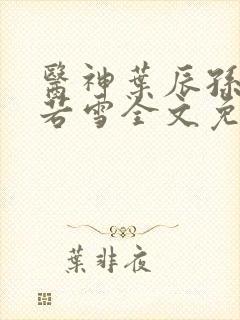 醫神葉辰孫
若雪全文免
葉非夜